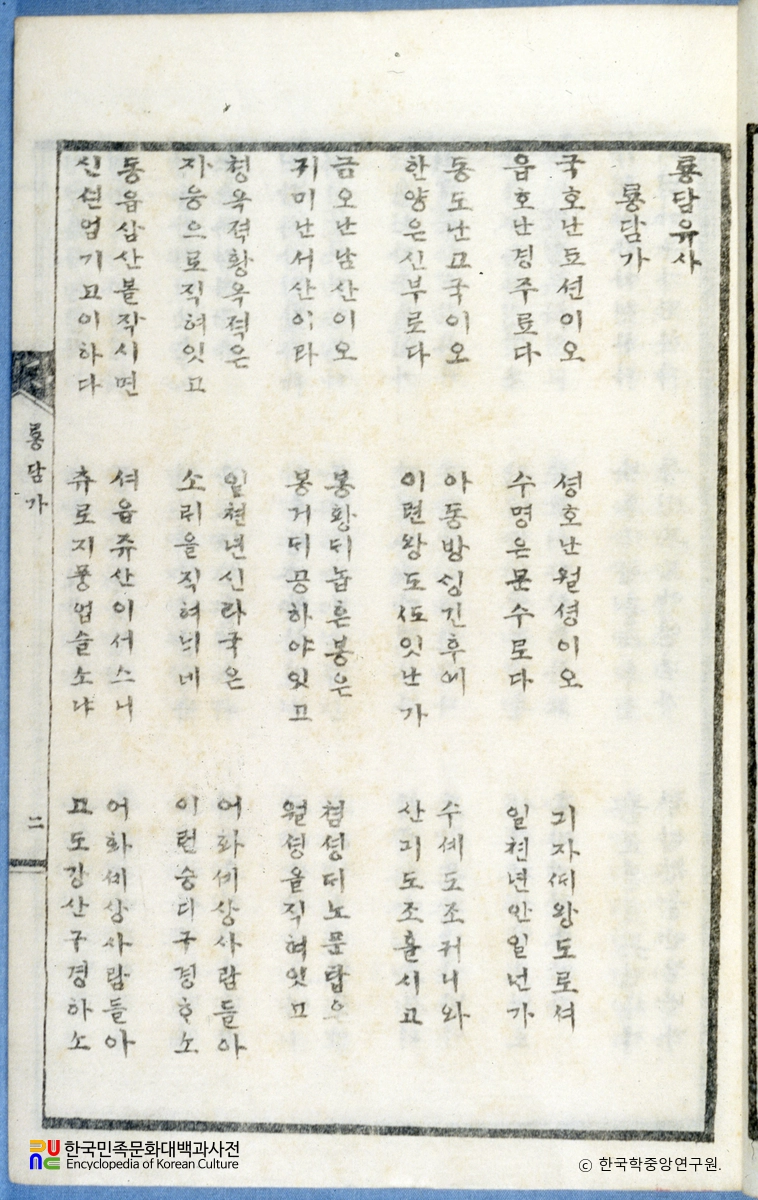 룡담유사
룡담가
국호난됴션이오
읍호난경주료다
셩호난월셩이오
수명은문수로다
긔자ᄯᅢ왕도로셔
일쳔년안일넌가
동도난고국이오
한양은신부로다
아동방ᄉᆡᆼ긴후에
이련왕도ᄯᅩ잇난가
수셰도조커니와
산긔도조흘시고
금오난남산이오
귀미난서산이라
봉황ᄃᆡ놉흔봉은
봉거ᄃᆡ공하야잇고
쳠셩ᄃᆡ노푼탑은
월셩을직혀잇고
쳥옥젹황옥젹은
자웅으로직혀잇고
일쳔년신라국은
소ᄅᆡ을직혀ᄂᆡ네
어화셰상사람들아
이런승디구경ᄒᆞ소
동읍삼산볼작시면
신션업기고이하다
셔읍쥬산이서스니
츄로지풍업슬소냐
어화셰상사람들아
고도강산구경하소
룡담가
二
한국민족문화대백과사전
Encyclopedia of Korean Culture
© 한국학중앙연구원.